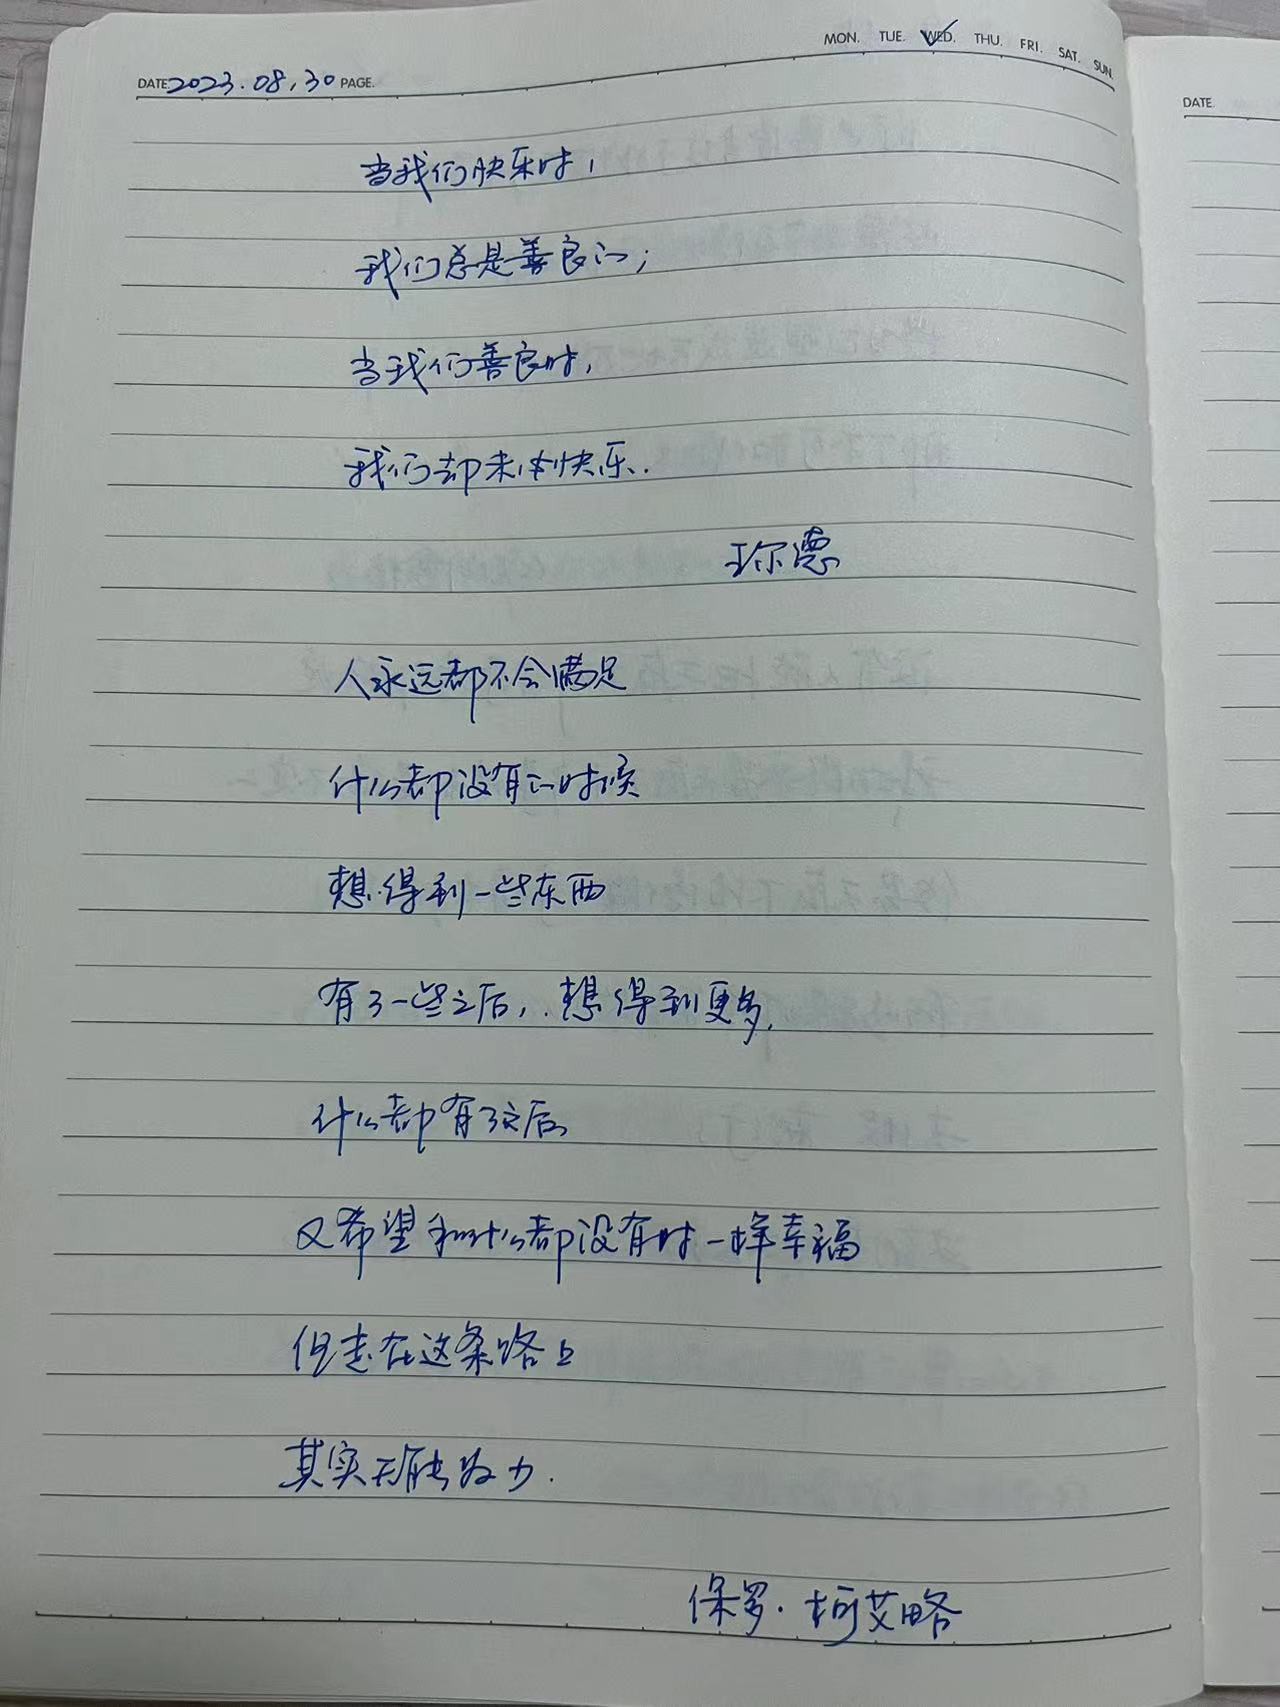 MON. TUE. WED. THU. FRI. SAT. SUN.
DATE 2023.08.30 PAGE.
DATE.
当我们快乐时,
我们总是善良的;
当我们善良时,
我们却未必快乐.
王尔德
人永远都不会满足
什么都没有的时候
想得到一些东西
有了一些之后,想得到更多,
什么都有了之后
又希望和什么都没有时一样幸福
但走在这条路上
其实无能为力.
保罗·柯艾略